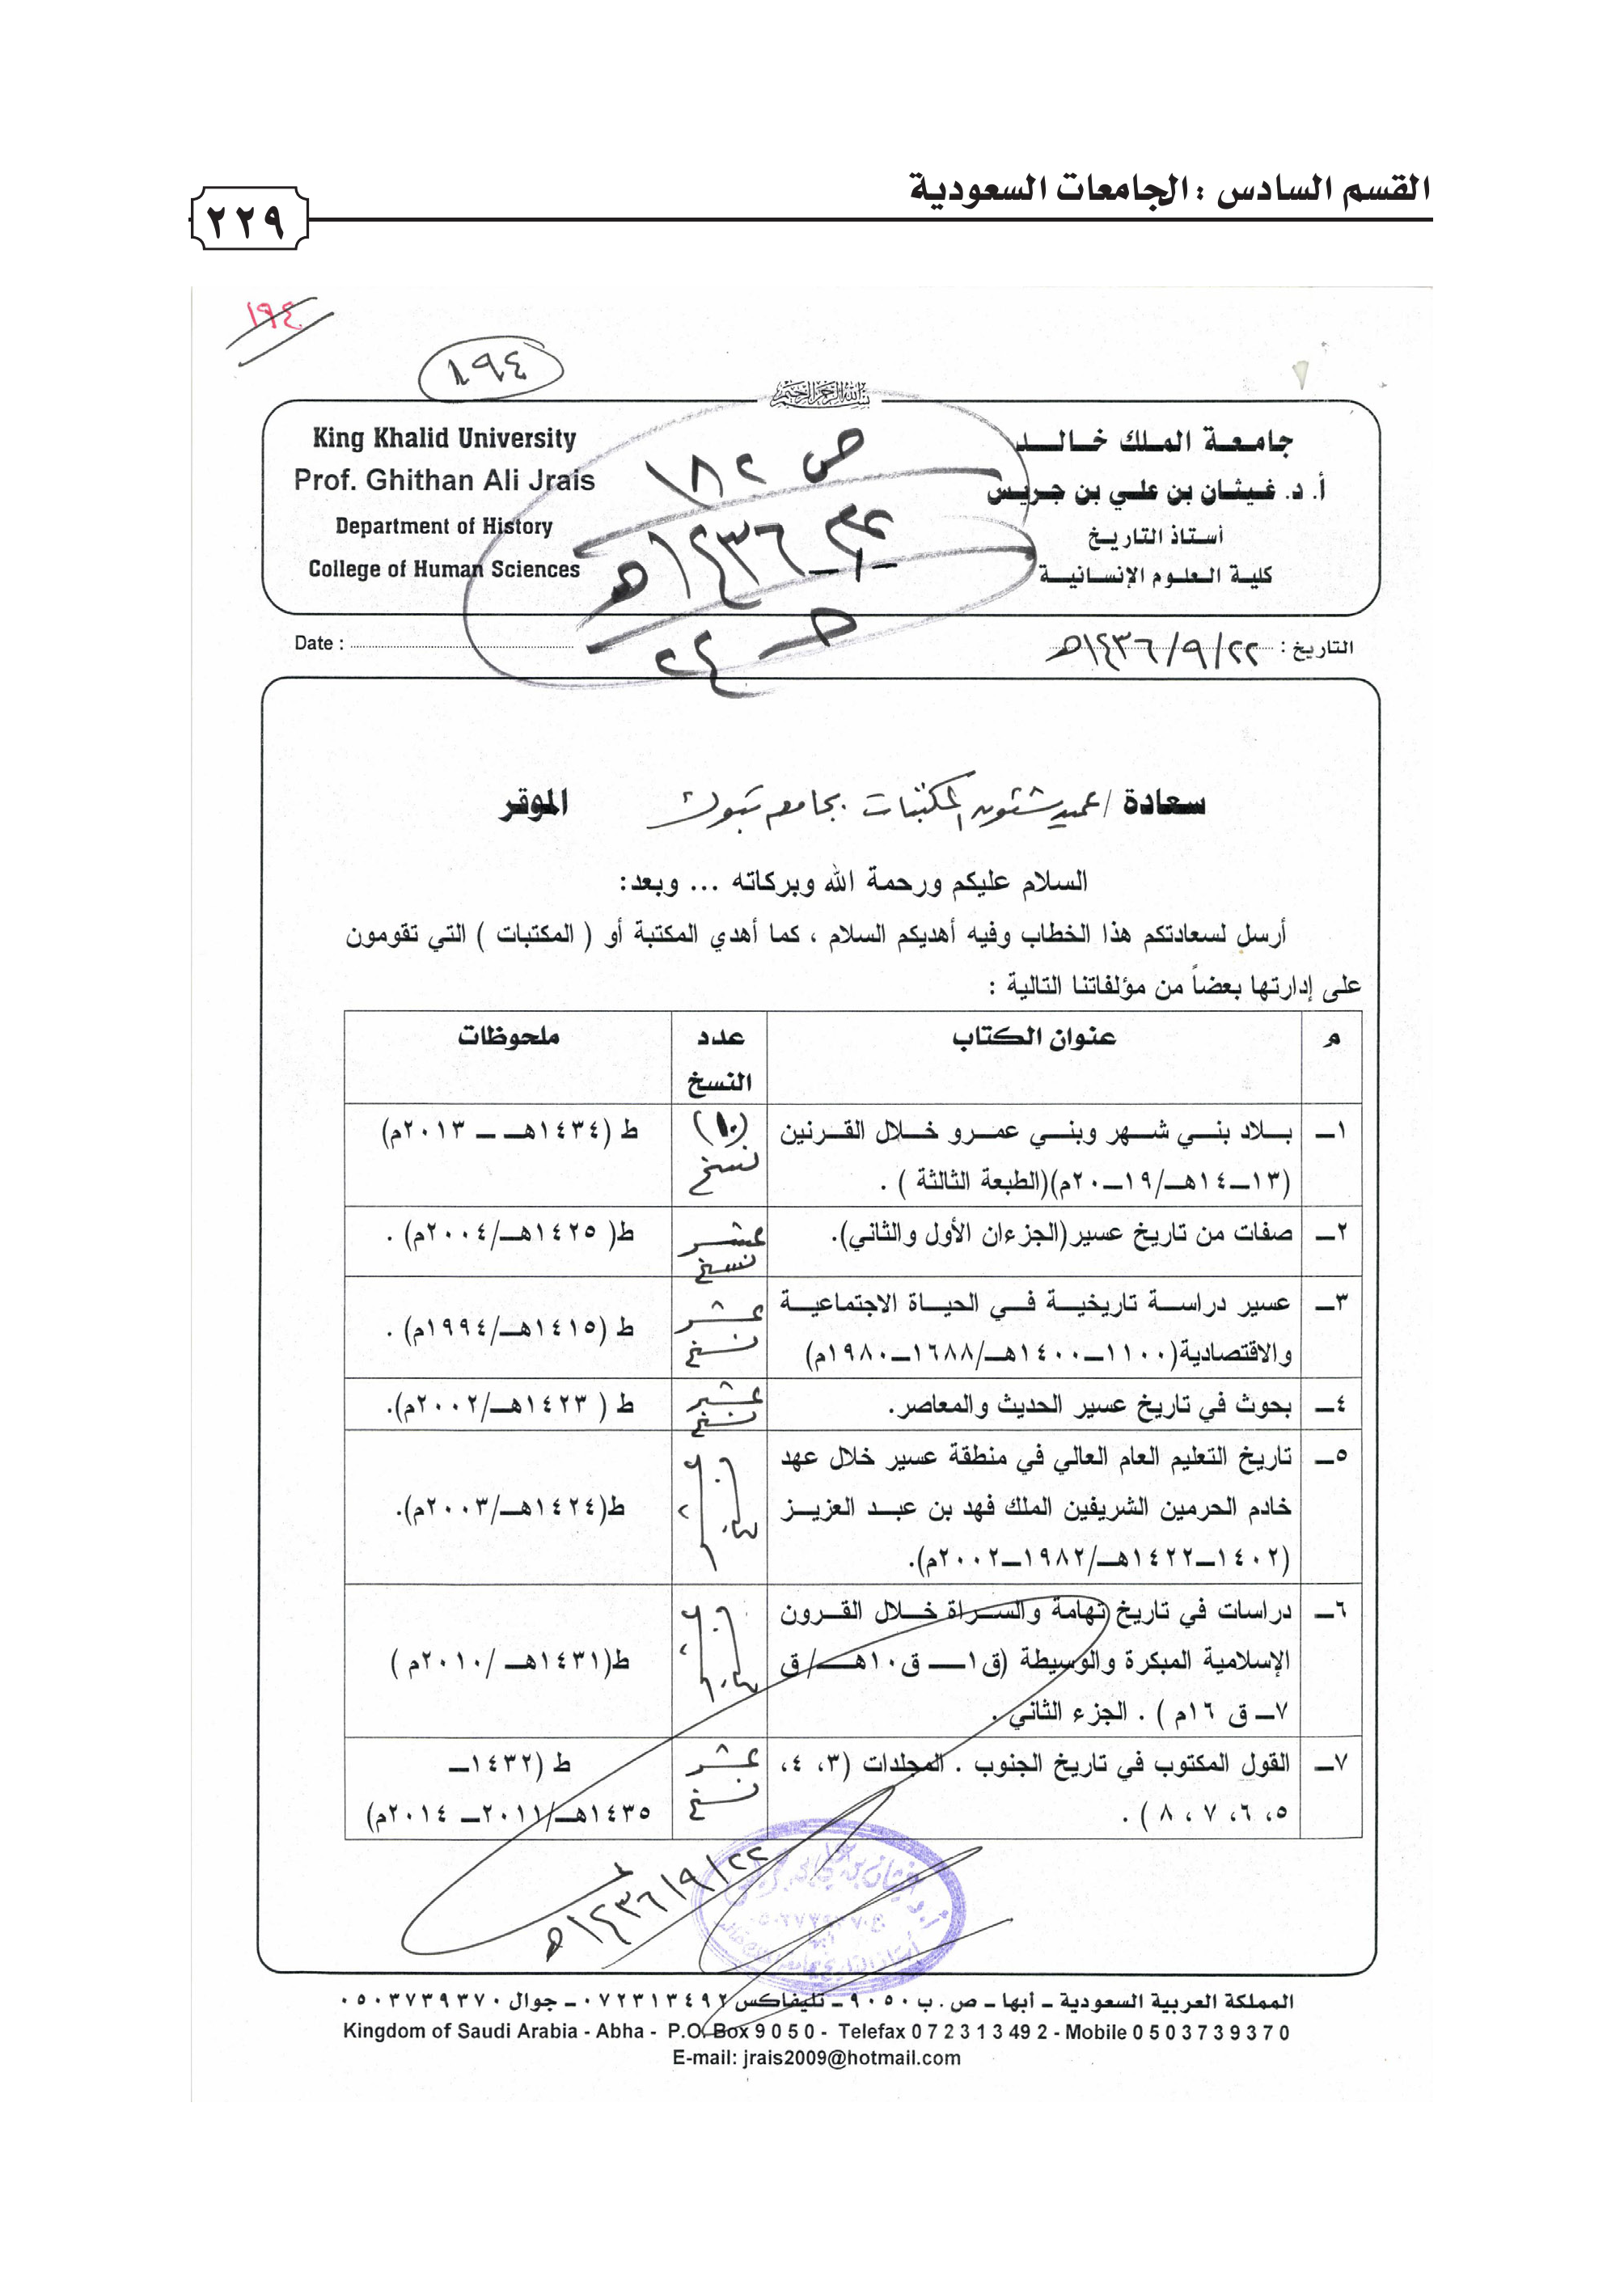 القسم السادس : الجامعات السعودية
٢٢٩
١٩٤
٨٩٤
بسم الله الرحمن الرحيم
جامعة الملك خالد
أ. د. غيثان بن علي بن جريس
أستاذ التاريخ
كلية العلوم الإنسانية
King Khalid University
Prof. Ghithan Ali Jrais
Department of History
College of Human Sciences
ص ١٨٢
١٤٣٦هـ
٢٤
التاريخ : ٢٢/٩/١٤٣٦هـ
Date :
سعادة / عميد شئون المكتبات بجامعة تبوك الموقر
السلام عليكم ورحمة الله وبركاته ... وبعد:
أرسل لسعادتكم هذا الخطاب وفيه أهديكم السلام ، كما أهدي المكتبة أو ( المكتبات ) التي تقومون
على إدارتها بعضاً من مؤلفاتنا التالية :
م عنوان الكتاب عدد النسخ ملحوظات
١ـ بلاد بني شهر وبني عمرو خلال القرنين
(١٣ـ١٤هـ/١٩ـ٢٠م)(الطبعة الثالثة ) .
(١٠) نسخ
ط (١٤٣٤هـ ـ ٢٠١٣م)
٢ـ صفات من تاريخ عسير(الجزءان الأول والثاني).
عشر نسخ
ط( ١٤٢٥هـ/٢٠٠٤م) .
٣ـ عسير دراسة تاريخية في الحياة الاجتماعية
والاقتصادية(١١٠٠ـ١٤٠٠هـ/١٦٨٨ـ١٩٨٠م)
عشر نسخ
ط (١٤١٥هـ/١٩٩٤م) .
٤ـ بحوث في تاريخ عسير الحديث والمعاصر.
عشر نسخ
ط ( ١٤٢٣هـ/٢٠٠٢م).
٥ـ تاريخ التعليم العام العالي في منطقة عسير خلال عهد
خادم الحرمين الشريفين الملك فهد بن عبد العزيز
(١٤٠٢ـ١٤٢٢هـ/١٩٨٢ـ٢٠٠٢م).
ط(١٤٢٤هـ/٢٠٠٣م).
٦ـ دراسات في تاريخ تهامة والسراة خلال القرون
الإسلامية المبكرة والوسيطة (ق١ـ ق١٠هـ/ ق
٧ـ ق ١٦م ) . الجزء الثاني .
ط(١٤٣١هـ /٢٠١٠م )
٧ـ القول المكتوب في تاريخ الجنوب . المجلدات (٣، ٤،
٥، ٦، ٧ ، ٨ ) .
عشر نسخ
ط (١٤٣٢ـ
١٤٣٥هـ/٢٠١١ـ ٢٠١٤م)
٢٢/٩/١٤٣٦هـ
المملكة العربية السعودية ـ أبها ـ ص . ب ٩٠٥٠ ـ تليفاكس ٠٧٢٣١٣٤٩٢ ـ جوال ٠٥٠٣٧٣٩٣٧٠
Kingdom of Saudi Arabia - Abha - P.O. Box 9 0 5 0 - Telefax 0 7 2 3 1 3 49 2 - Mobile 0 5 0 3 7 3 9 3 7 0
E-mail: jrais2009@hotmail.com